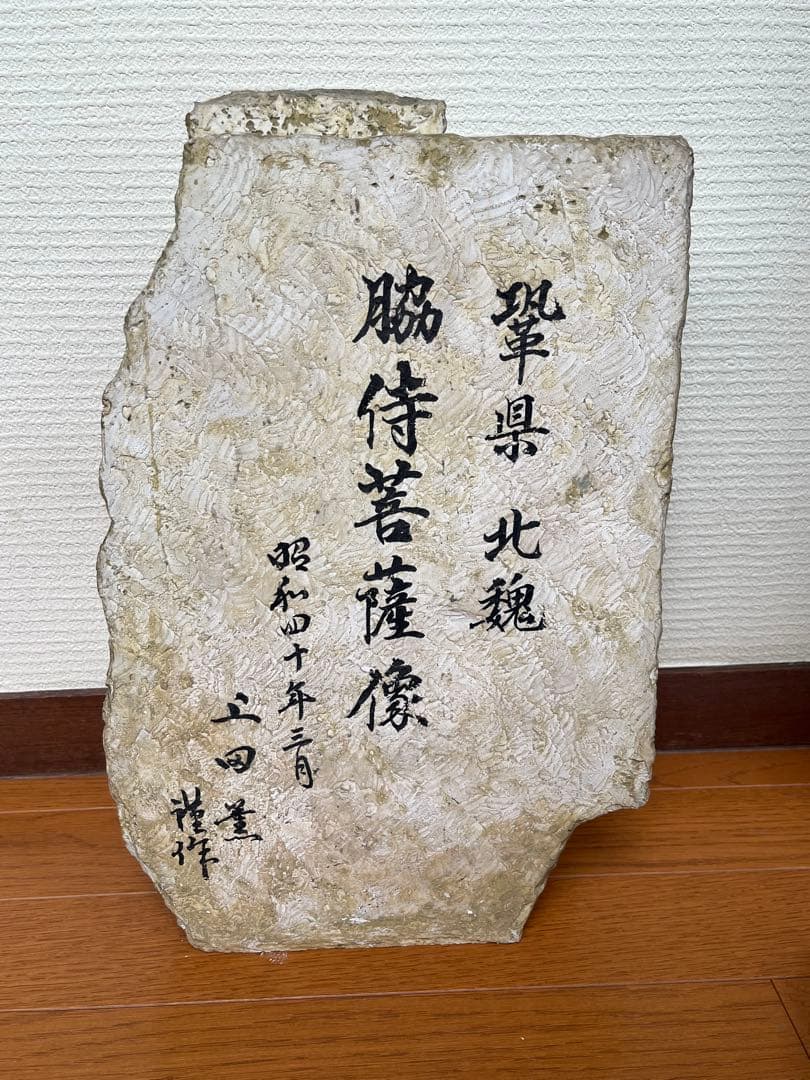 鞏県 北魏
脇侍菩薩像
昭和四十年三月
上田薫
謹作